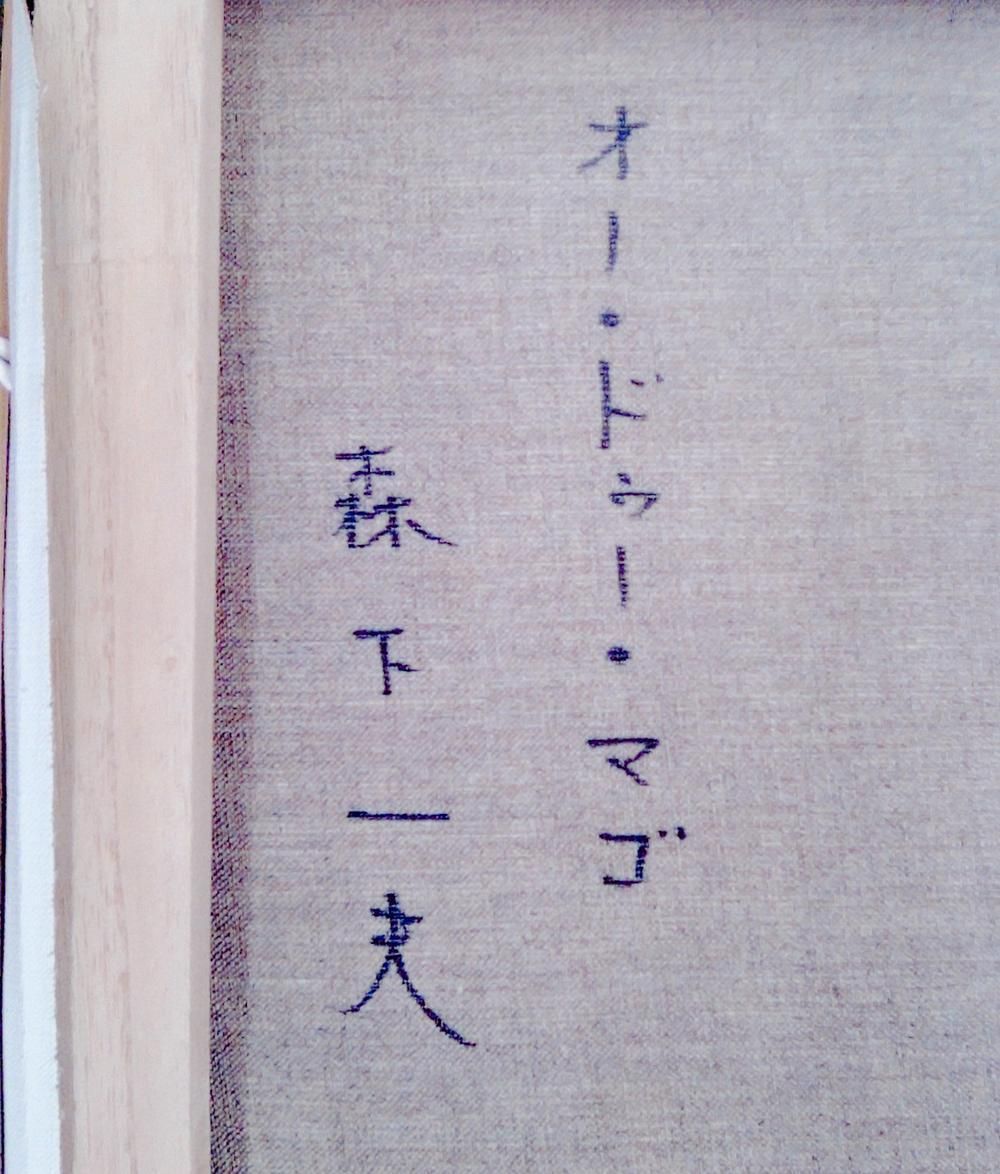 オー・ドゥー・マゴ
森下一夫